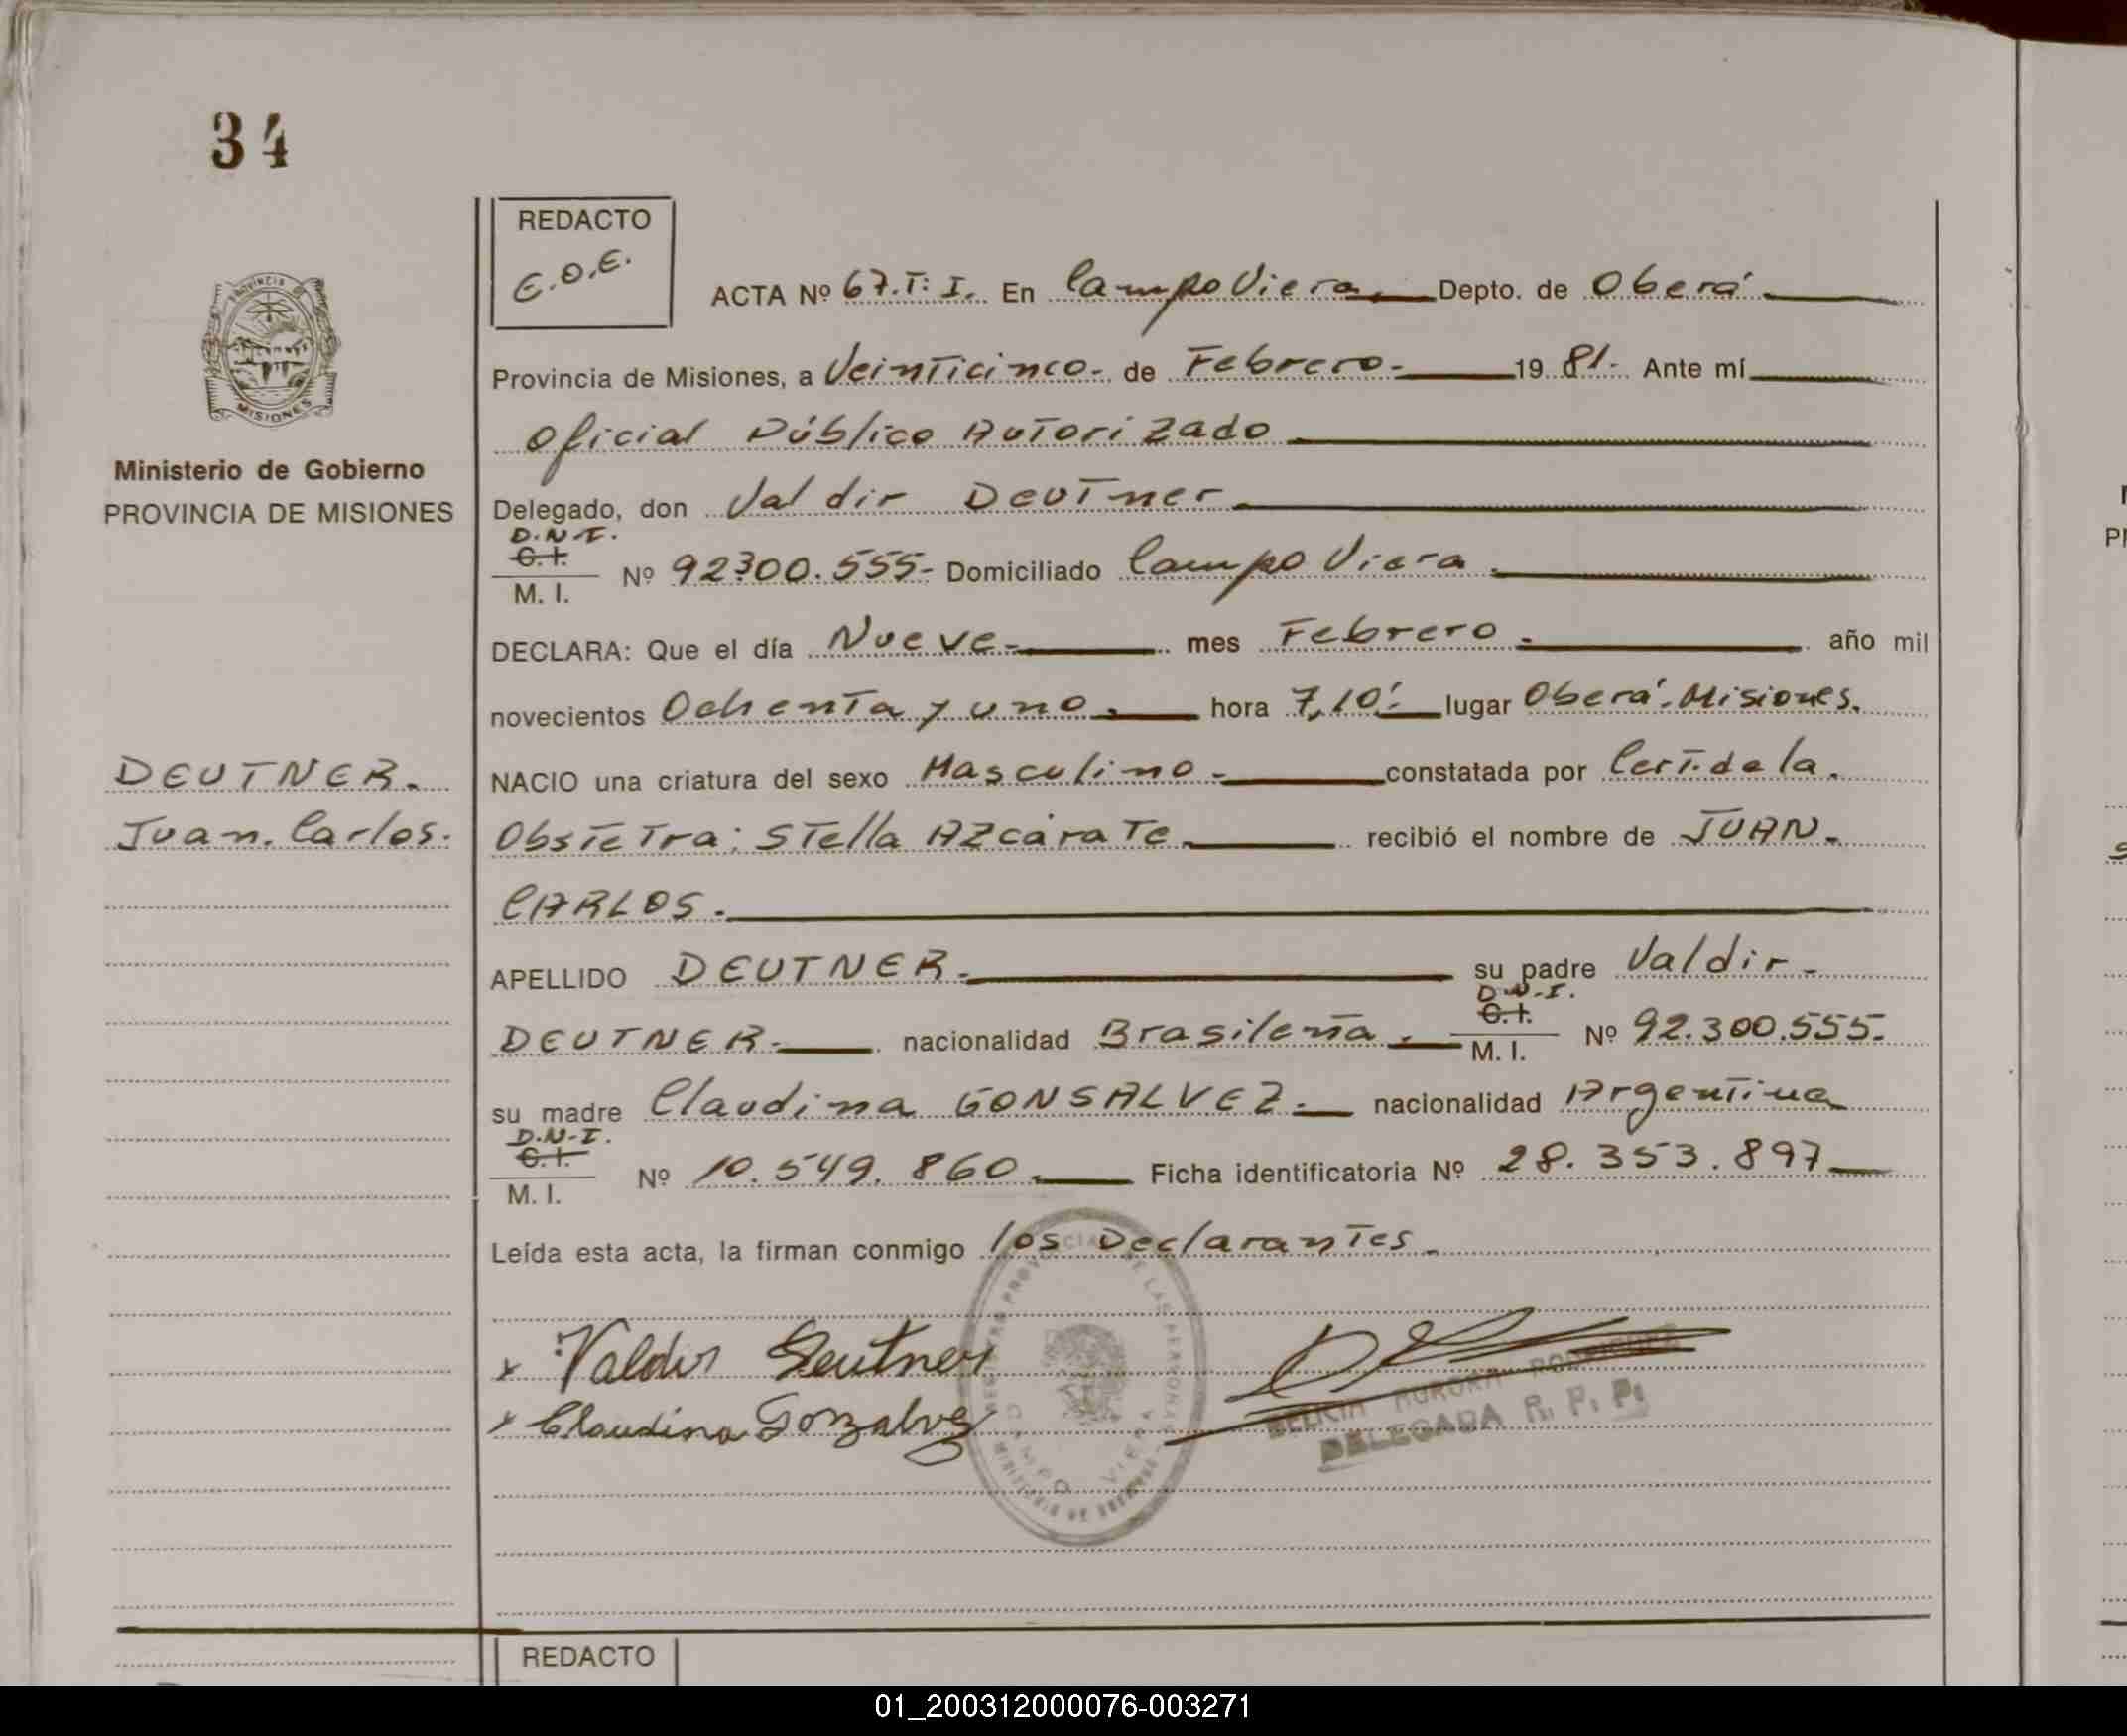 34
REDACTO
E.O.E.
ACTA Nº 67.T: I. En Campo Viera. Depto. de Oberá.
PROVINCIA
MISIONES
Provincia de Misiones, a Veinticinco. de Febrero. 19 81. Ante mí
Oficial Público Autorizado
Ministerio de Gobierno
PROVINCIA DE MISIONES
Delegado, don Valdir Deutner
D.N.I.
C.I.
M. I. Nº 92300.555- Domiciliado Campo Viera.
DECLARA: Que el día Nueve. mes Febrero. año mil
novecientos Ochenta y uno. hora 7,10' lugar Oberá. Misiones.
NACIO una criatura del sexo Masculino. constatada por Cert. de la.
DEUTNER.
Juan. Carlos.
Obstetra: Stella Azcárate. recibió el nombre de JUAN.
CARLOS.
APELLIDO DEUTNER. su padre Valdir.
D.N.I.
C.I.
DEUTNER. nacionalidad Brasileña. M. I. Nº 92.300.555.
su madre Claudina GONSALVEZ. nacionalidad Argentina
D.N.I.
C.I.
M. I. Nº 10.549.860. Ficha identificatoria Nº 28.353.897
Leída esta acta, la firman conmigo los Declarantes.
x Valdir Deutner
x Claudina Gonzalvez
AURORA
DELEGADA R. P. P.
CAMPO VIERA
REDACTO
01_200312000076-003271